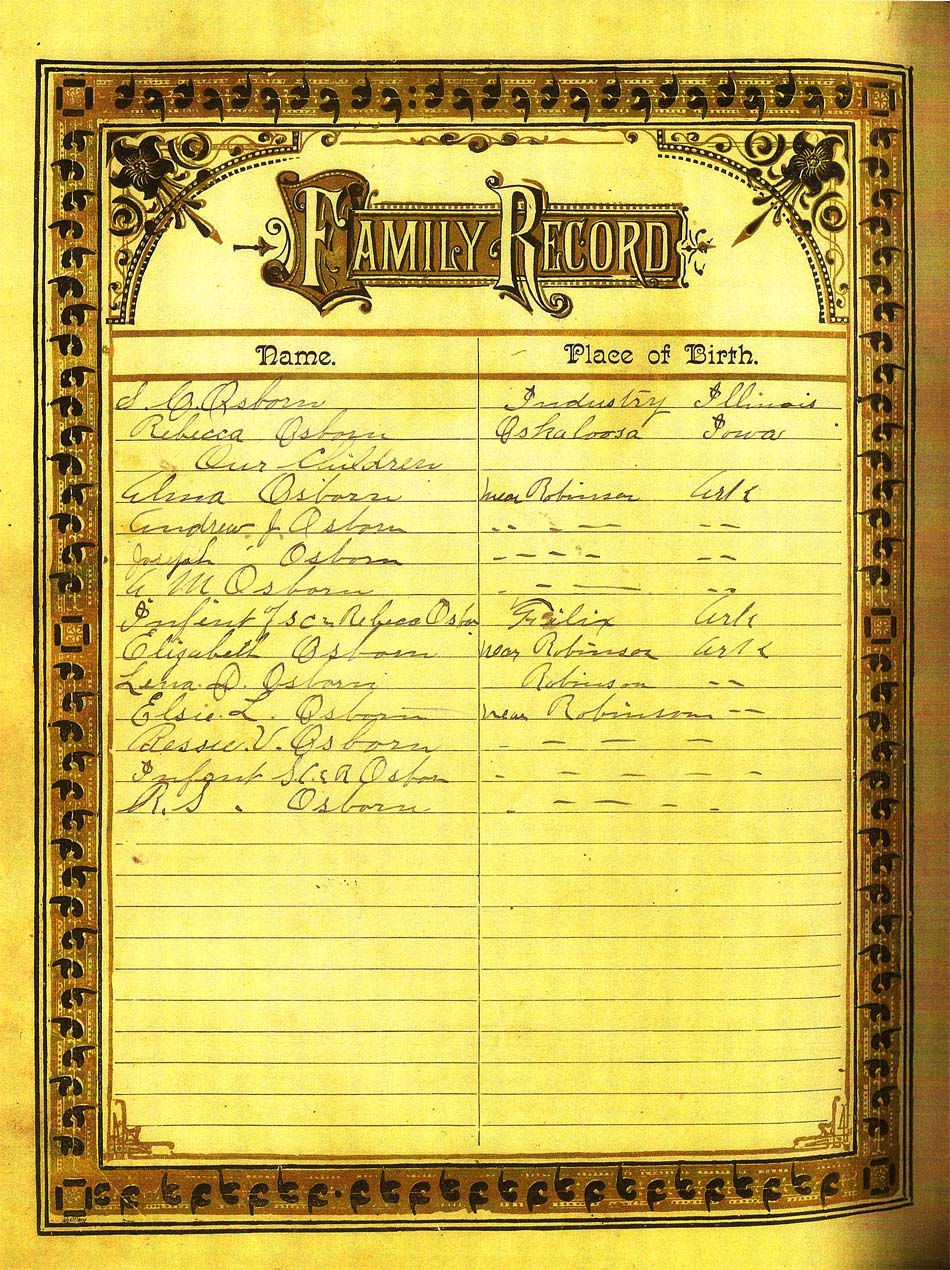 FAMILY RECORD
Name. Place of Birth.
S C. Osborn Industry Illinois
Rebecca Osborn Oskaloosa Iowa
Our Children
Alma Osborn near Robinson Ark
Andrew J Osborn -- - -- --
Joseph Osborn - - - - --
A M Osborn - -- --
Infent of S C & Rebecca Osborn Filix Ark
Elizabeth Osborn near Robinson Ark
Lena D. Osborn Robinson --
Elsie L. Osborn near Robinson --
Bessie V. Osborn - - - - -
Infent S. C. & R Osborn - - - - -
R. S. Osborn - - - - -